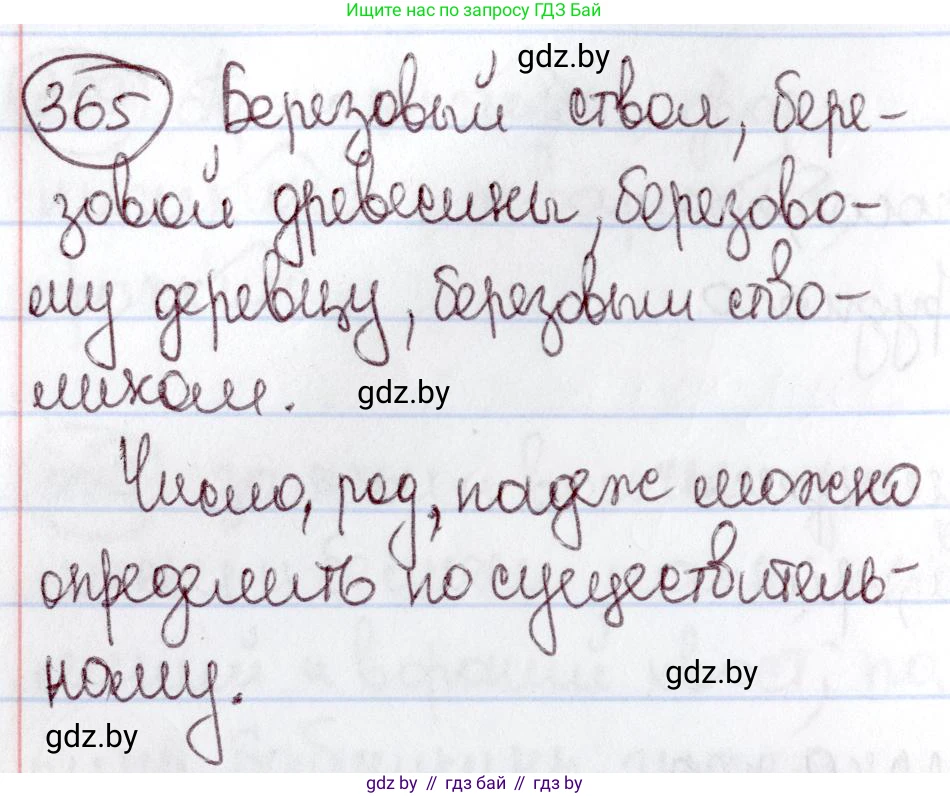 Ищите нас по запросу ГДЗ Бай
gdz.by
365 Березовый ствол, бере-
зовой древесины, березово-
му деревцу, березовым ство-
ликом.
gdz.by
Число, род, падеж можно
определить по существитель-
ному.
gdz.by
gdz.by
gdz.by // гдз бай // гдз by